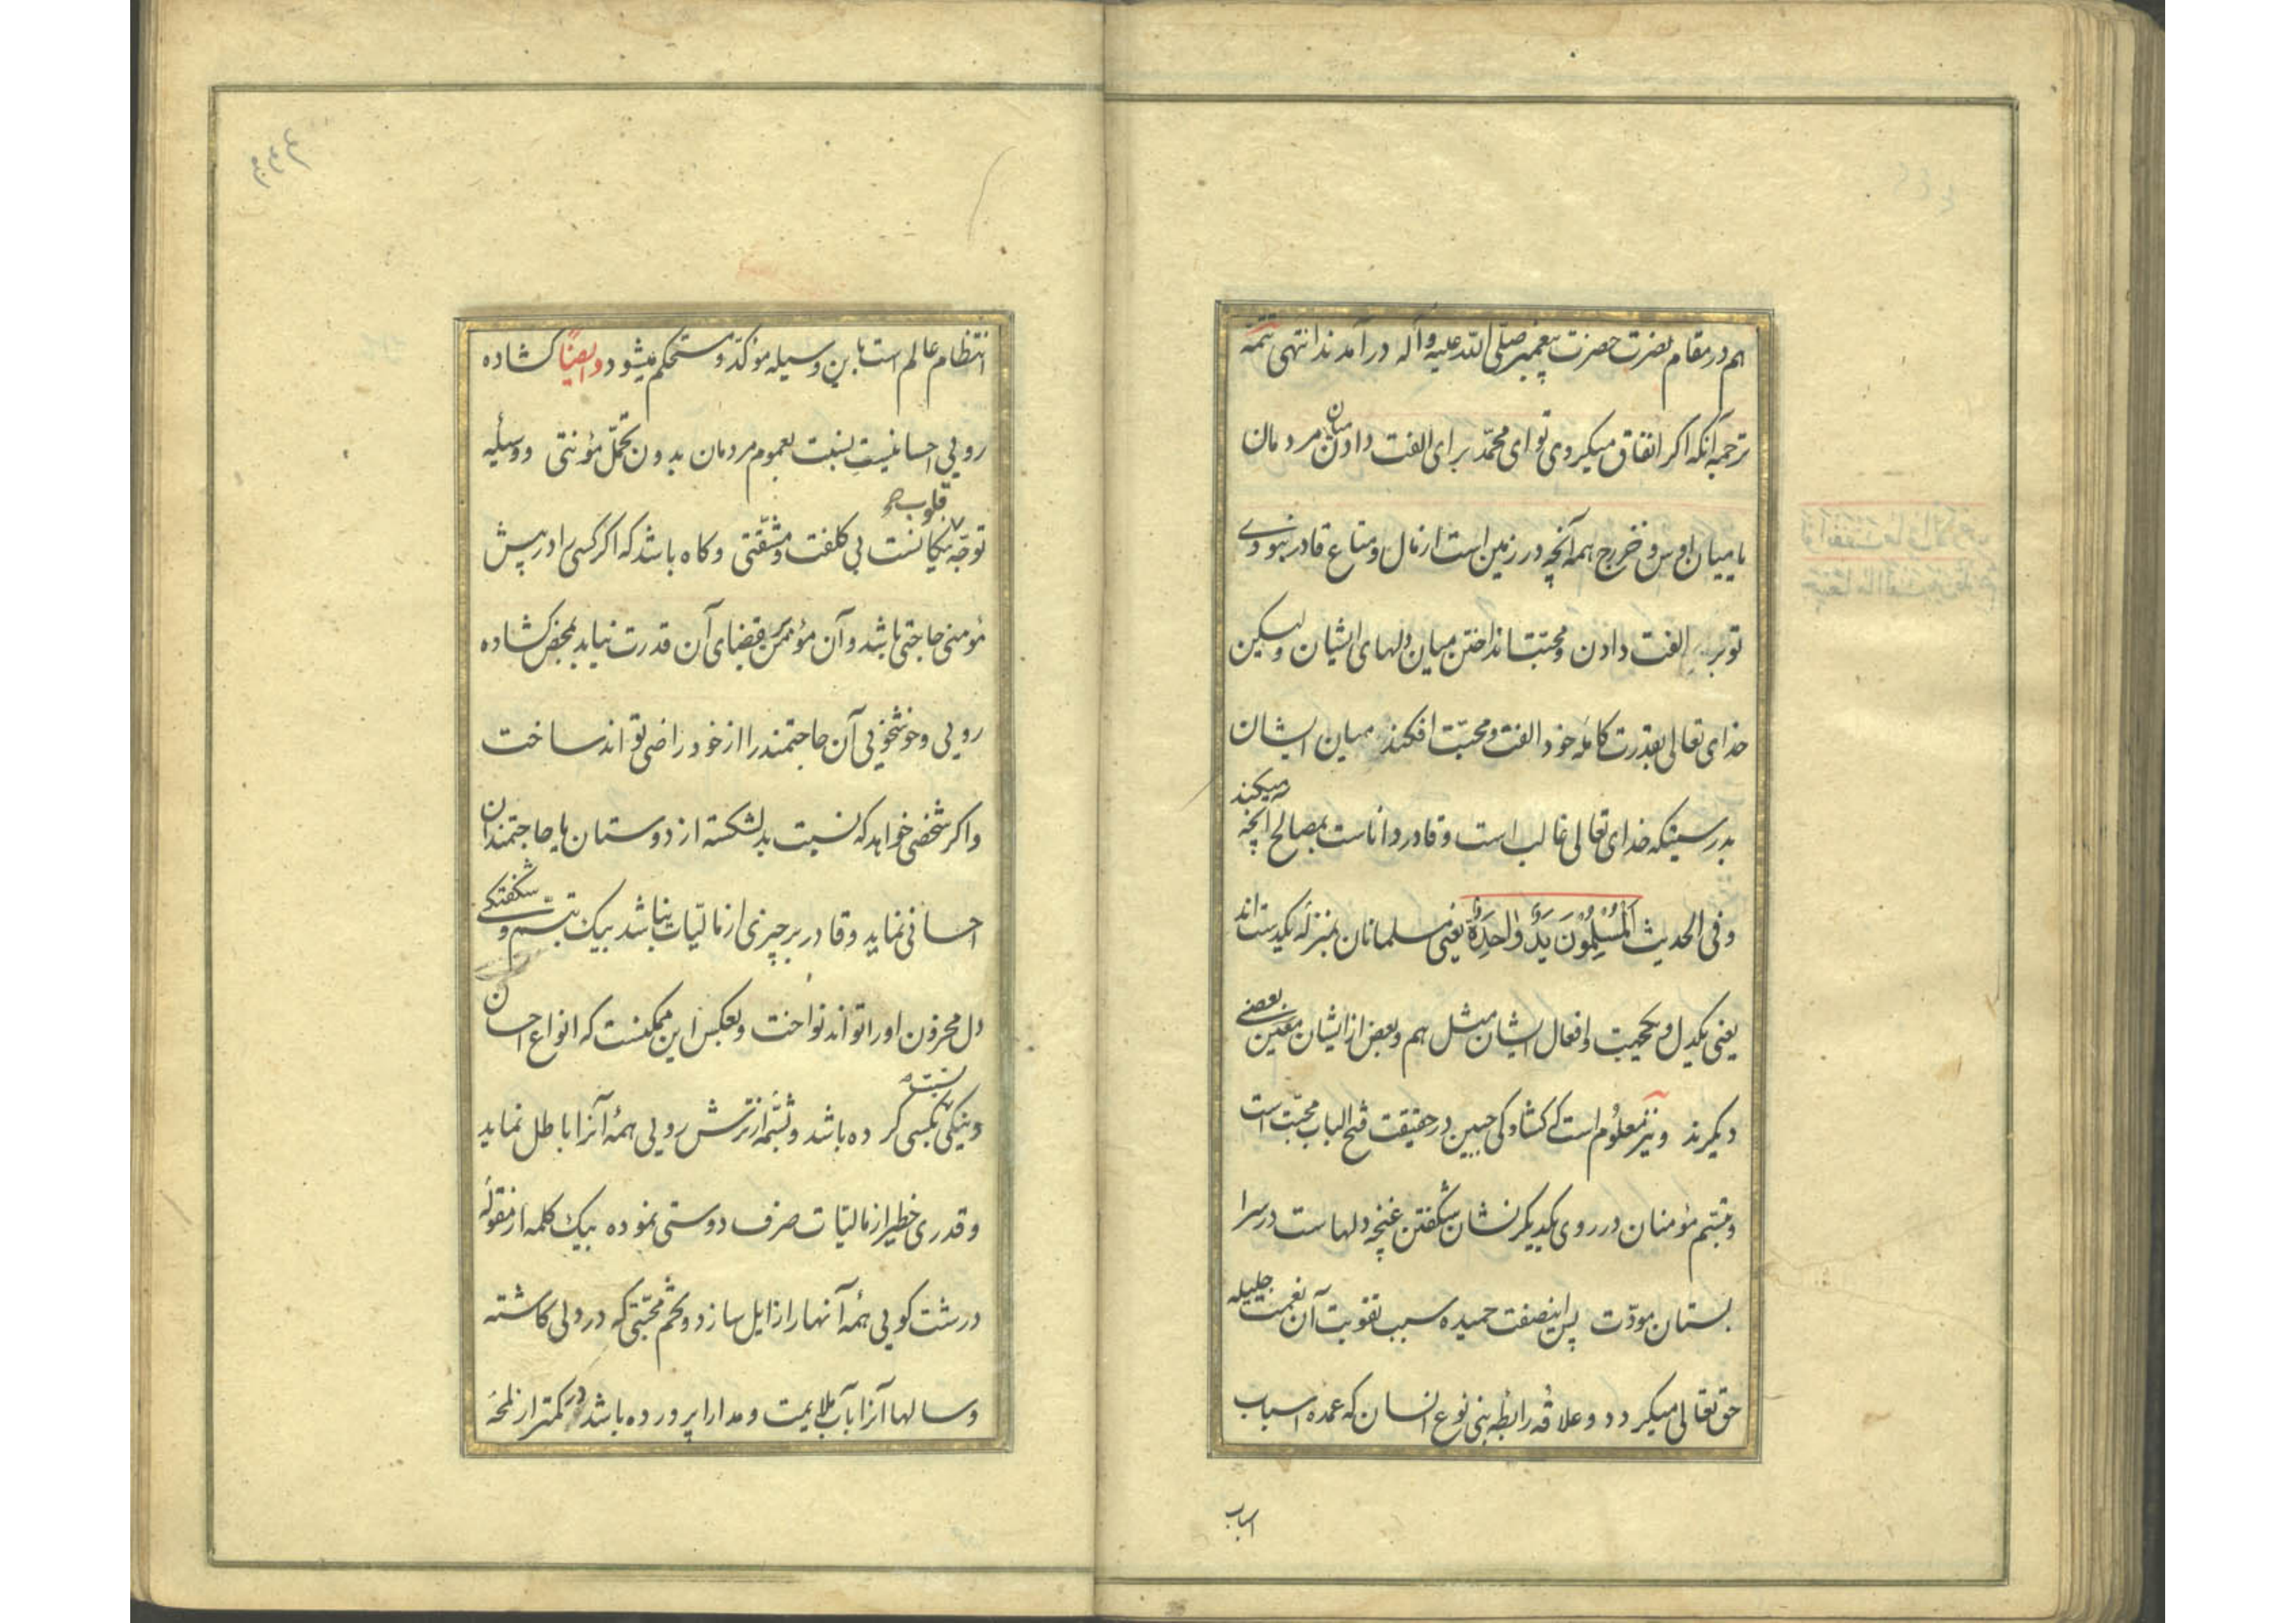 هم در مقام نصرت حضرت پیغمبر صلی الله علیه وآله در آمدند انتهی تتمه
ترجمه آنکه اکر انفاق میکردی تو ای محمد برای الفت دادن میان مردمان
یا میان اوس و خزرج همه آنچه در زمین است از مال و متاع قادر نبودی
تو بر الفت دادن و محبت انداختن میان دلهای ایشان ولیکن
خدای تعالی بقدرت کامله خود الفت و محبت افکند میان ایشان
بدرستیکه خدای تعالی غالب است و قادر و دانا ست بمصالح آنچه میکند
وفی الحدیث اَلْمُسْلِمُونَ یَدٌ وٰاحِدَةٌ یعنی مسلمانان بمنزله یکدست اند
یعنی یکدل و یکجهت و افعال ایشان مثل هم و بعض از ایشان معین بعضی
دیکرند و نیز معلوم است که کشادکی جبین در حقیقت فتح الباب محبت است
و تبسم مؤمنان در روی یکدیکر نشان شکفتن غنچه دلهاست در سرا
بستان مودّت پس اینصفت حمیده سبب تقویت آن نعمت جلیله
حق تعالی میکردد و علاقه رابطه بنی نوع انسان که عمده اسباب
اسباب
انتظام عالم است باین وسیله مؤکّد و مستحکم میشود وایضاً کشاده
رویی احسانیست بنسبت بعموم مردمان بدون تحمّل مؤنتی و وسیله
توجّه قلوب یکانست بی کلفت و مشقّتی و کاه باشد که اکر کسی را در پیش
مؤمنی حاجتی باشد و آن مؤمن بر قضای آن قدرت نیابد بمحض کشاده
رویی و خوشخویی آن حاجتمند را از خود راضی تواند ساخت
و اکر شخصی خواهد که نسبت بدلشکسته از دوستان یا حاجتمندان
احسانی نماید و قادر بر چیزی از مالیات نباشد بیک تبسم و شکفتکی
دل محزون او را تواند نواخت و بعکس این ممکنست که انواع احسان
و نیکی نسبت بکسی کرده باشد و شمّه از ترش رویی همهٔ آنرا باطل نماید
و قدری خطیر از مالیّات صرف دوستی نموده بیک کلمه از مقولهٔ
درشت کویی همهٔ آنها را زایل سازد و تخم محبّتی که در دلی کاشته
و سالها آنرا بآب ملایمت و مدارا پرورده باشد در کمتر از لمحهٔ